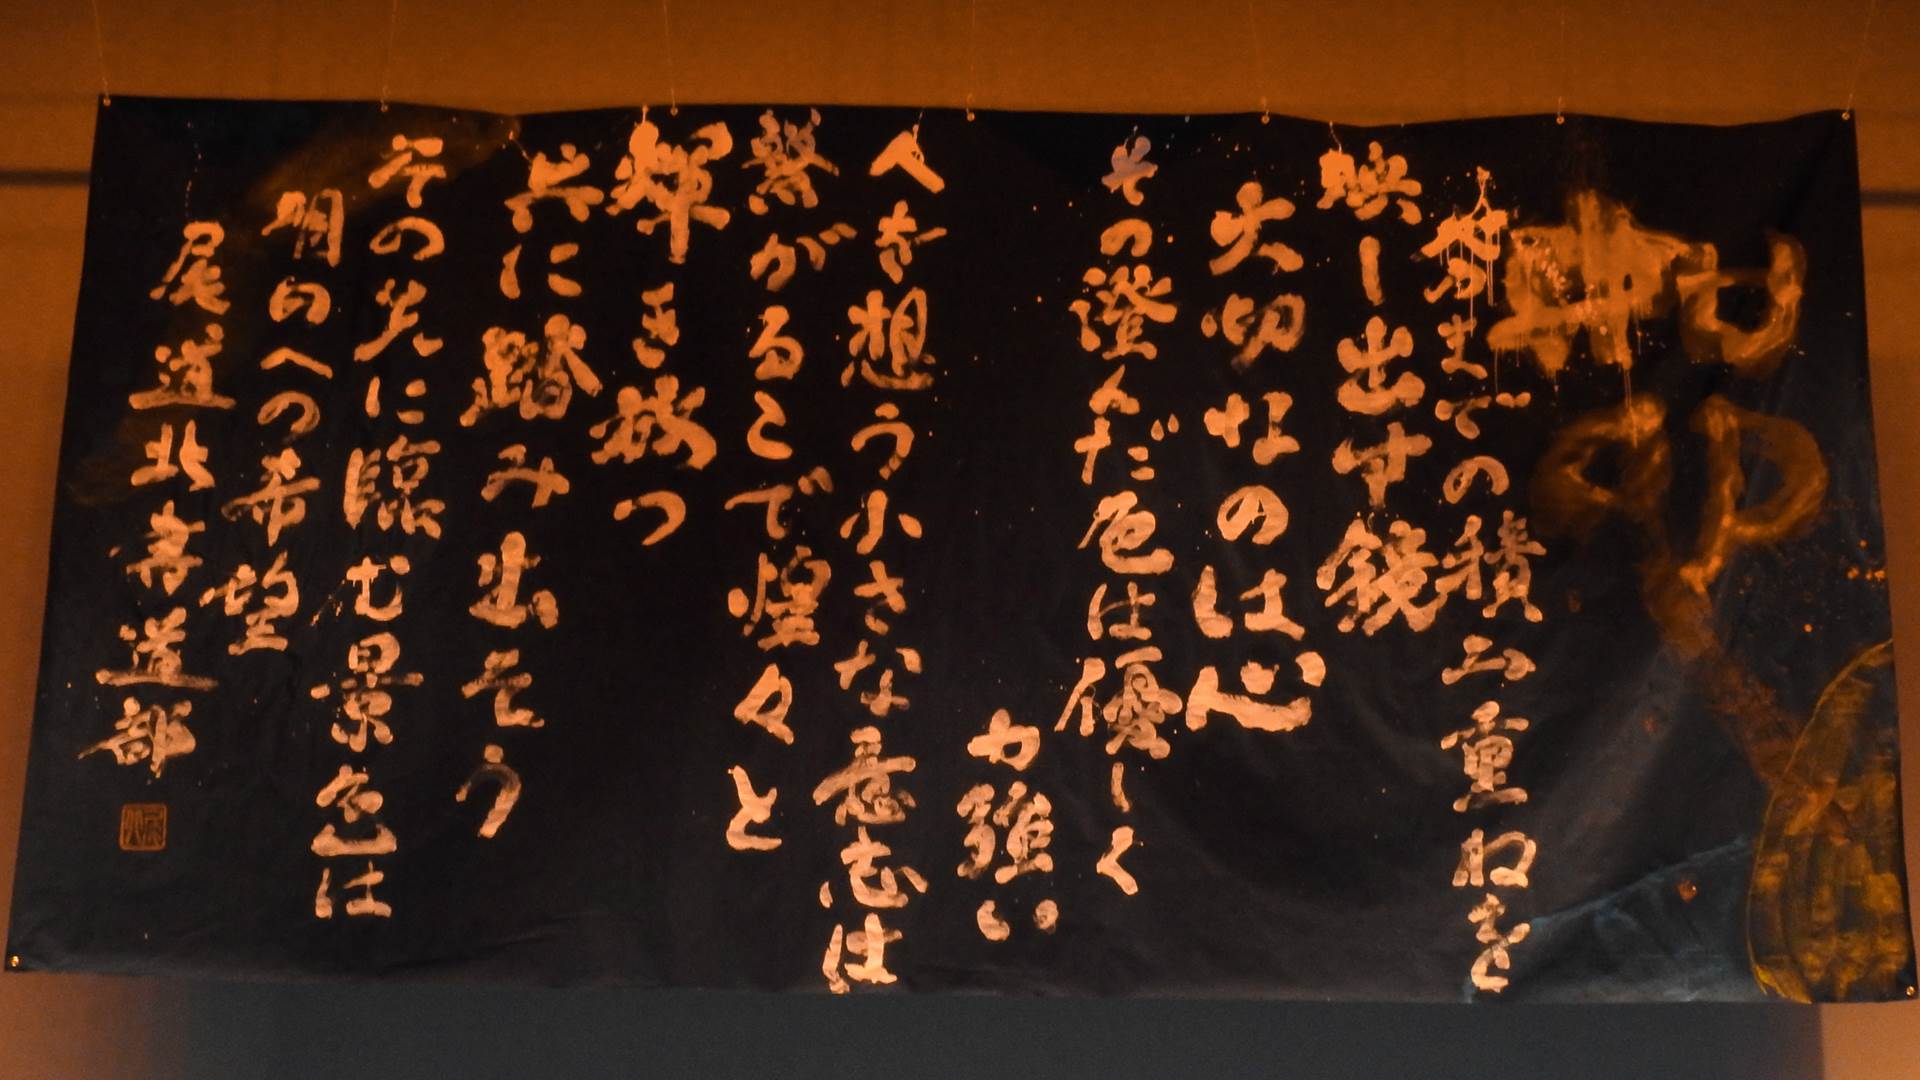 今までの積み重ねを
映し出す鏡
大切なのは心
その澄んだ色は優しく
力強い
人を想う小さな意志は
繋がることで煌々と
輝き放つ
共に踏み出そう
その先に臨む景色は
明日への希望
尾道北書道部